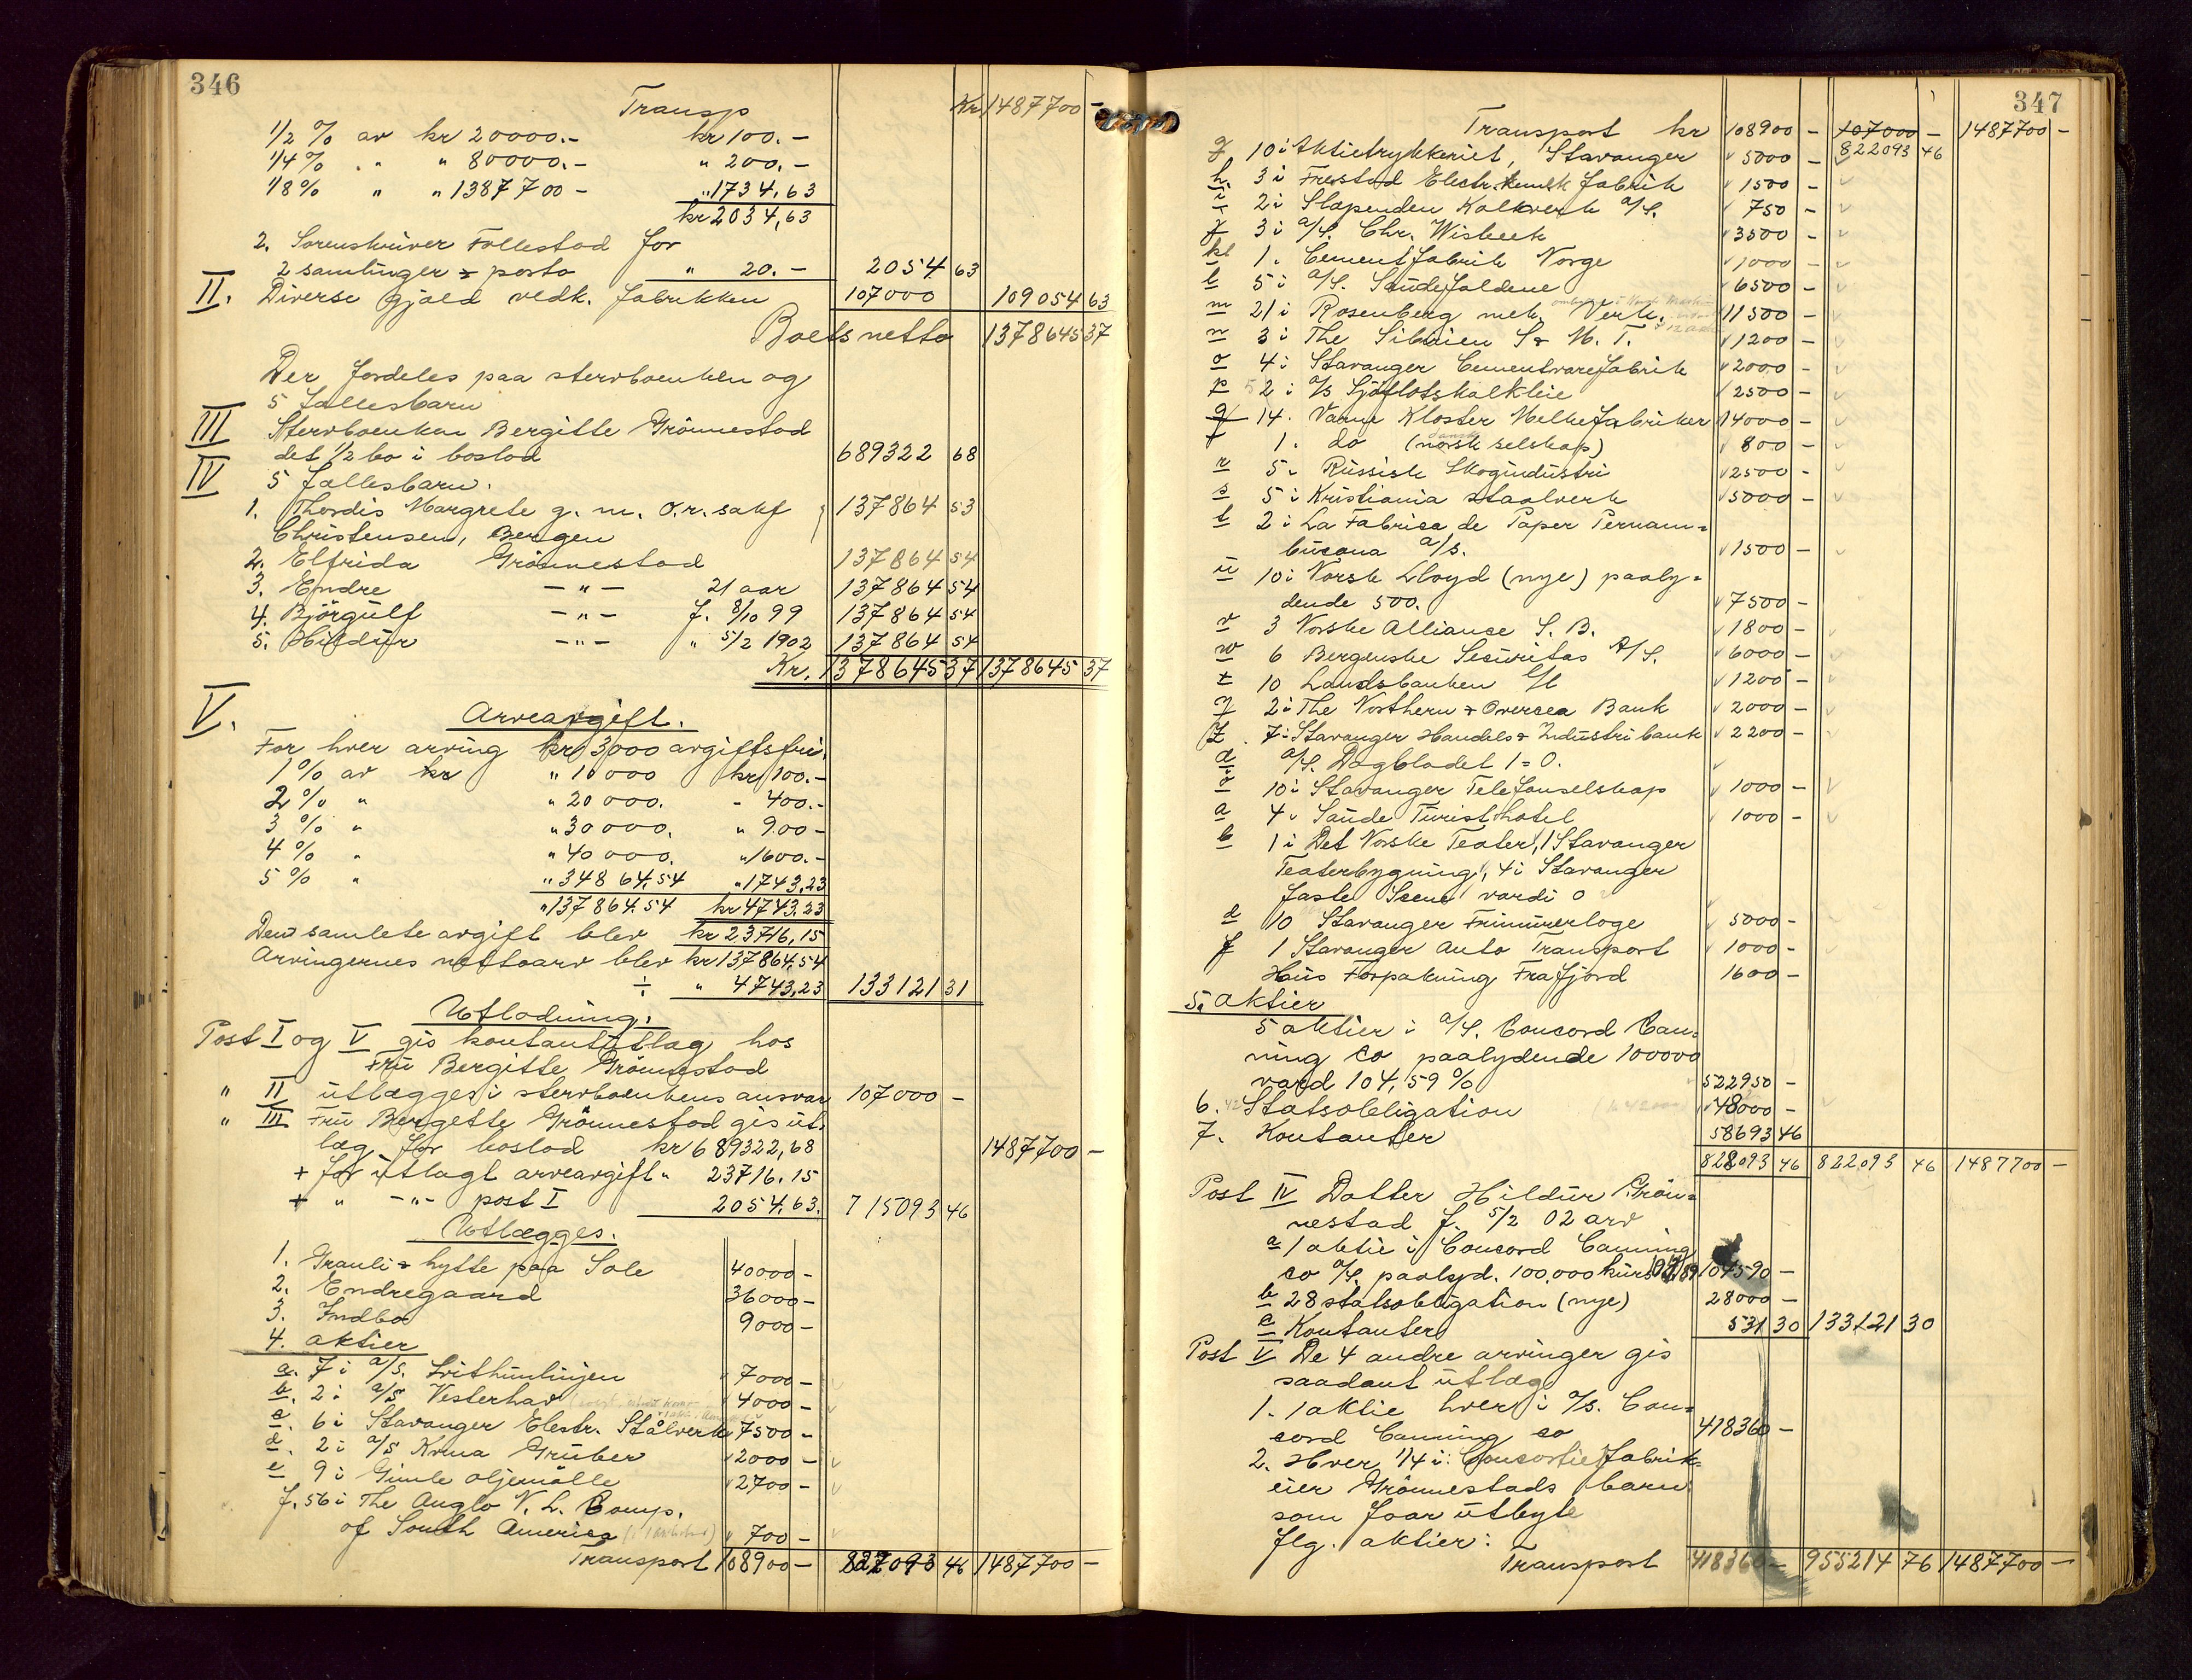 346
Transp Kr 1487700 -
1/2 % av kr 20000.- kr 100.-
1/4 % " " 80000.- " 200.-
1/8 % " " 1387700 - " 1734,63
kr 2034,63
2. Sorenskriver Follestad for
2 samlinger + porto " 20.- 2054 63
II. Diverse gjæld vedk. fabrikken 107000 109054 63
Boets netto 1378645 37
Der fordeles paa stervboenken og
5 fællesbarn
III Stervboenken Bergitte Grönnestad
det 1/2 bo i boslod 689322 68
IV 5 fællesbarn.
1. Thordis Margrete g. m. O.r. sakf 137864 53
Christensen, Bergen
2. Elfrida Grönnestad 137864 54
3. Endre -"- 21 aar 137864 54
4. Björgulf -"- f. 8/10 99 137864 54
5. Hildur -"- " 5/2 1902 137864 54
Kr. 1378645 37 1378645 37
V. Arveavgift.
For hver arving kr 3000 avgiftsfri.
1 % av kr " 10000 kr 100.-
2 % " " 20000. - 400.-
3 % " " 30000. " 900 -
4 % " " 40000. " 1600.-
5 % " " 34864,54 " 1743,23
" 137864.54 kr 4743.23
Den samlete avgift blev kr 23716,15
Arvingernes nettoarv blev kr 137864,54
÷ " 4743,23 133121 31
Utlodning.
Post I og V gis kontantutlag hos
Fru Bergitte Grönnestad
" II utlægges i stervboenkens ansvar 107000 -
" III Fru Bergette Grönnestad gis ut-
læg for boslod kr 689322,68 1487700 -
+ for utlagt arveavgift " 23716.15
+ " -"- post I 2054,63. 715093 46
Utlægges.
1. Grauli + hytte paa Sole 40000 -
2. Endregaard 36000 -
3. Indbo 9000 -
4. aktier
a. 7 i a/s. Svithunlinjen 7000 -
b. 2 i a/s Vesterhav 4000 -
c. 6 i Stavanger Elestr. Stålverk 7500 -
d. 2 i a/s Kvina Gruber 2000 -
e 9 i Gimle oljemölle 2700 -
f. 56 i The Anglo N. L. Comp.
of South America 700 -
Transport 108900 - 822093 46 1487700 -
347
Transport kr 108900 - 107000 - 1487700 -
g 10 i Aktietrykkeriet, Stavanger 5000 - 822093 46
h. 3 i Frestad Electr. kemisk fabrik 1500 -
i 2 i Slependen Kalkverk a/s. 750 -
j 3 i a/s. Chr. Wisbeck 3500 -
k 1 " Cementfabrik Norge 1000 -
l 5 i a/s. Saudefaldene 6500 -
m 21 i Rosenberg mek. Verk. 11500 -
n 3 i The Siberien S & M. T. 1200 -
o 4 i Stavanger Cementvarefabrik 2000 -
p 2 i a/s Sjöflotskalkleie 2500 -
q 14. Varne Kloster Melkefabriker 14000 -
1. do (norsk selskap) 800 -
r 5 " Russisk Skogindustri 2500 -
s 5 i Kristiania staalverk 5000 -
t 2 i La Fabrica de Paper Pernam=
bucana a/s. 1500 -
u 10 i Norsk Lloyd (nye) paaly=
dende 500. 7500 -
v 3 Norske Alliance S. B. 1800 -
w 6 Bergenske Securitas A/S. 6000 -
x 10 Landsbanken 1200 -
y 2 i The Northern & Oversea Bank 2000 -
z. 7 i Stavanger Handels & Industribank 2200 -
a/s. Dagbladet 1 = 0.
10 i Stavanger Telefonselskap 1000 -
a 4 i Saude Turisthotel 1000 -
b 1 i Det Norske Teater, 1 Stavanger
Teaterbygning, 4 i Stavanger
faste Scene værdi 0
d 10 Stavanger Frimurerloge 5000 -
f 1 Stavanger Auto Transport 1000 -
Hus Forpakning Frafjord 1600 -
5. aktier
5 aktier i a/s. Concord Can=
ning Co paalydende 100000
værd 104,59 % 522950 -
6. 42 Statsobligation 48000 -
7. Kontanter 58693 46
822093 46 822093 46 1487700 -
Post IV Datter Hildur Grön=
nestad f. 5/2 02 arv
a 1 aktie i Concord Canning
co a/s. paalyd. 100.000 kurs 104590 -
b 28 statsobligation (nye) 28000 -
c Kontanter 531 30 133121 30
Post V De 4 andre arvinger gis
saadant utlæg
1. 1 aktie hver i a/s. Con=
cord Canning co 418360 -
2. Hver 1/4 i: Consortie fabrik-
eier Grönnestads barn
som faar utbyte
flg. aktier:
Transport 418360 - 955214 76 1487700 -